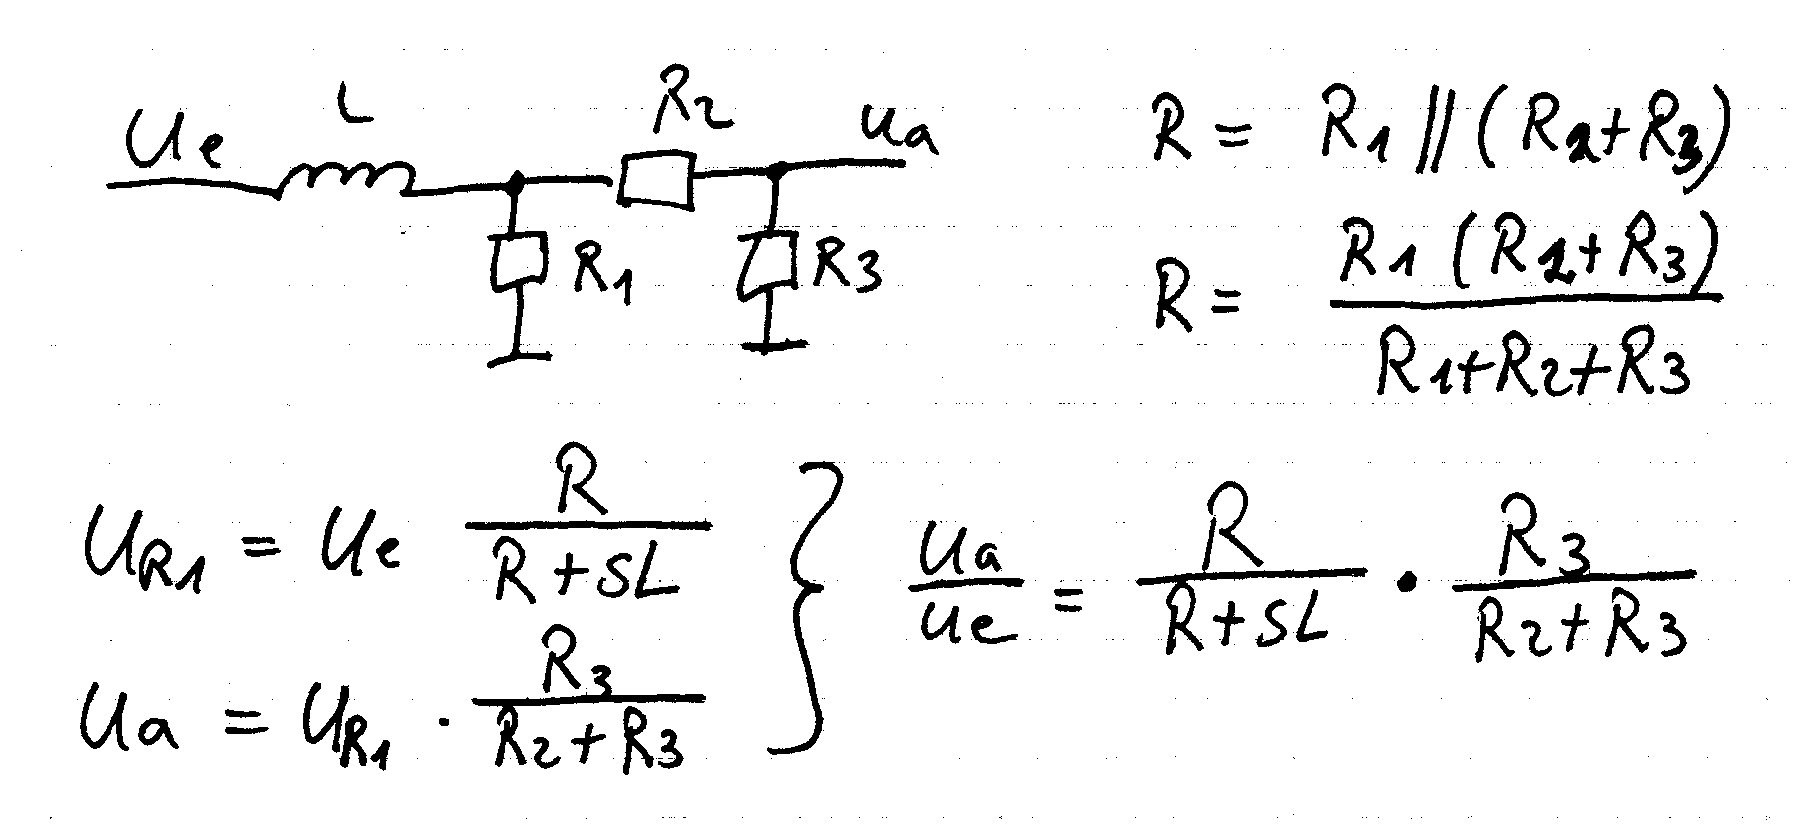 Ue L R2 ua
R1 R3
R = R1 // (R2+R3)
R = R1 (R2+R3) / R1+R2+R3
UR1 = Ue R / R+sL
Ua = UR1 · R3 / R2+R3
} Ua / Ue = R / R+sL · R3 / R2+R3